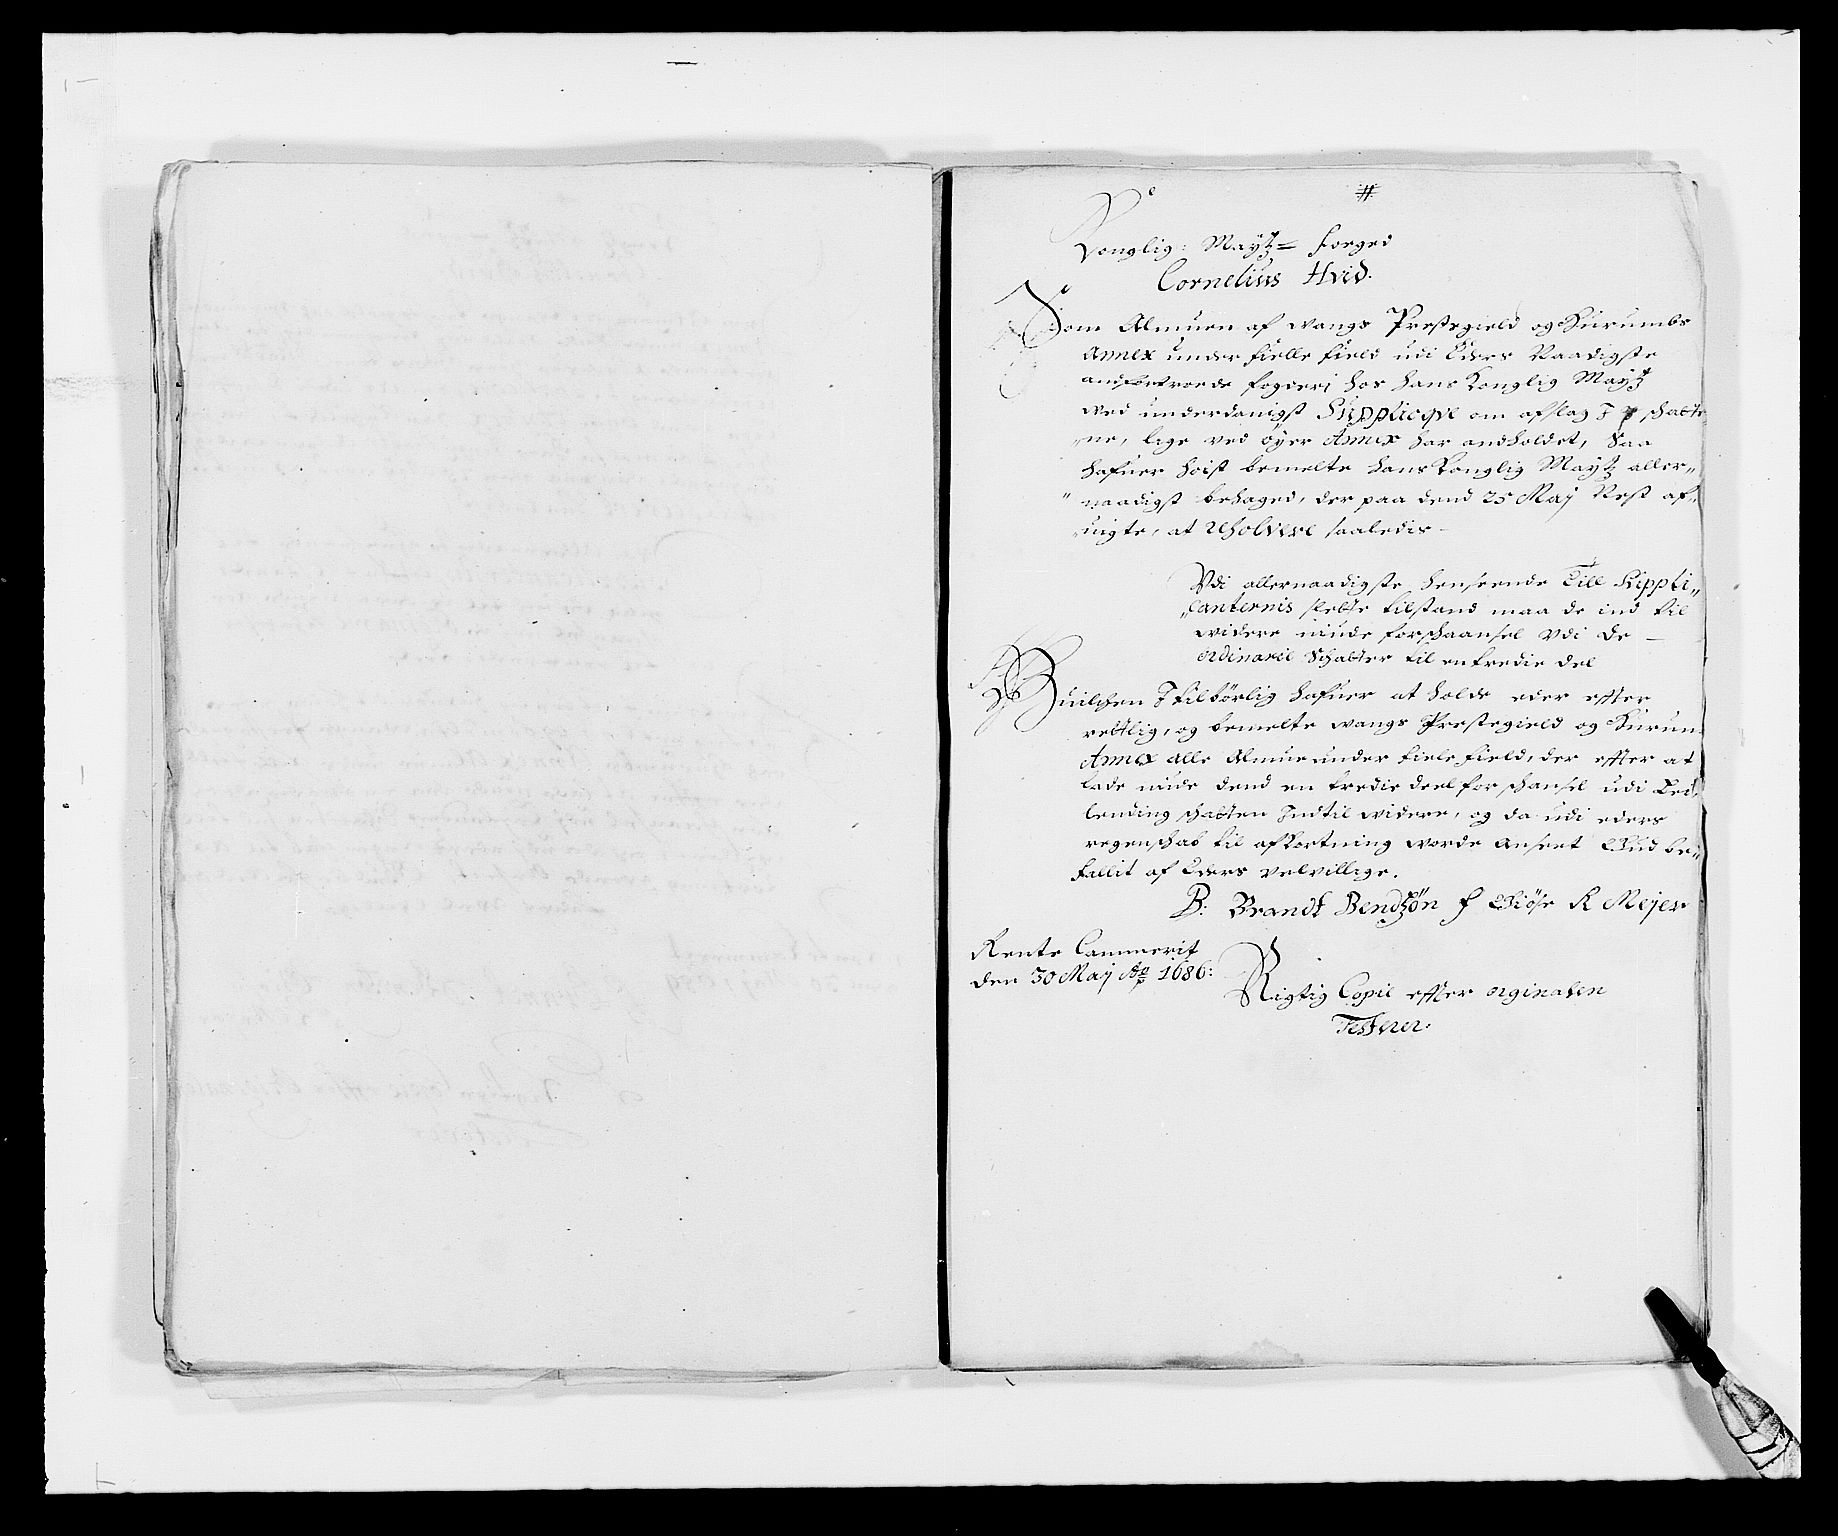 #
Konglig: Maytz= foeged
Cornelius Hvid.
Som Almuen af wangs Prestegield og Hurumbs
Annex under fielle field udi Eders Naadigste
andbetroede fogderj hos hans Konglig Maytz
ved underdanigst Suppliqve om afslag J schatte-
ne, lige ved öyer Annex har andholdet, Saa
hafuer höist bemelte hans Konglig Maytz aller„
„naadigst behaged, der paa dend 25 Maj Nest af„
uigte, at Resolvere saaledis -
Udi allernaadigste henseende Till Suppli„
„canternis slette tilstand maa de ind til
widere niude forschaansel Udi De —
ordinarie Schatter til en tredie del
Huilchen J tilbörlig hafuer at holde eder effter
rettlig, og bemelte wangs Prestegield og Hurum
Annex alle Almue under fiele field, der effter at
lade niude dend en tredie deel forschansel udi
lending schatten Indtil widere, og da udi eders
regenschab til afkortning worde Anseet Gud be„
fallit af Eders velvillige.
B: Brandt Bendtzön f Giöse R Mejer
Rente Cammerit
den 30 Maj Ao 1686:
Rigtig Copie effter orginalen
Testerer.